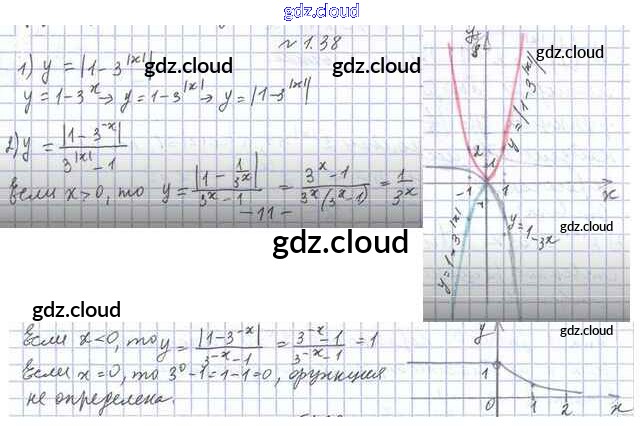 gdz.cloud
№ 1.38
1) y = |1-3^|x||
gdz.cloud
y = 1-3^x → y = 1-3^|x| → y = |1-3^|x||
2) y = |1-3^-x| / (3^|x| - 1)
gdz.cloud
Если x>0, то y = |1 - 1/3^x| / (3^x - 1) = (3^x - 1) / (3^x(3^x - 1)) = 1/3^x
- 11 -
gdz.cloud
y
8
gdz.cloud
y = |1-3^|x||
2
1
-1 1 x
y = 1-3^|x|
y = 1-3^x
gdz.cloud
gdz.cloud
gdz.cloud
Если x<0, то y = |1-3^-x| / (3^-x - 1) = (3^-x - 1) / (3^-x - 1) = 1
Если x=0, то 3^0 - 1 = 1 - 1 = 0, функция
не определена.
y
gdz.cloud
1
0 1 2 x